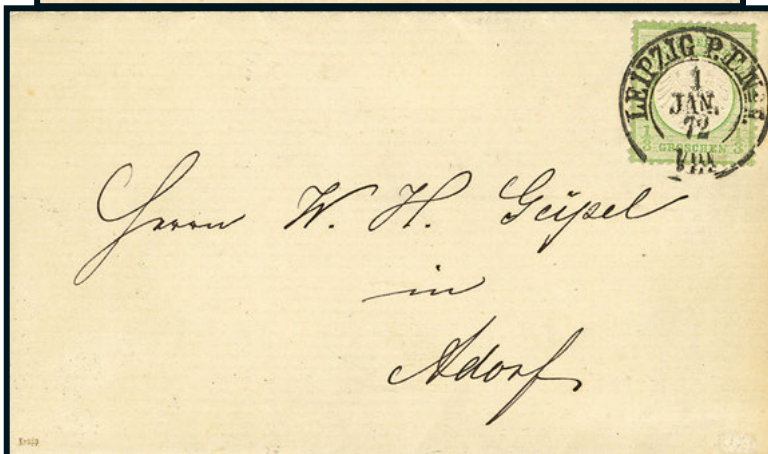 LEIPZIG P.E.No1.
1
JAN.
72
VIII
1/3 GROSCHEN 1/3
Herrn W. H. Geipel
in
Adorf